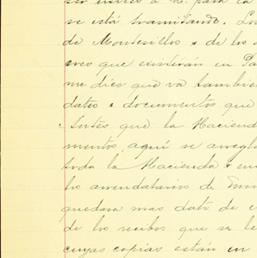 ser
se está tramitando.
de Montesillos & de los
eres que existirán en
me dices que vá tambien
datos & documentos que
Antes que la Haciend
mentos, aquí se arregl
toda la Hacienda &
los arrendatarios de
quedan mas dato de
de los recibos que se le
cuyas copias están en